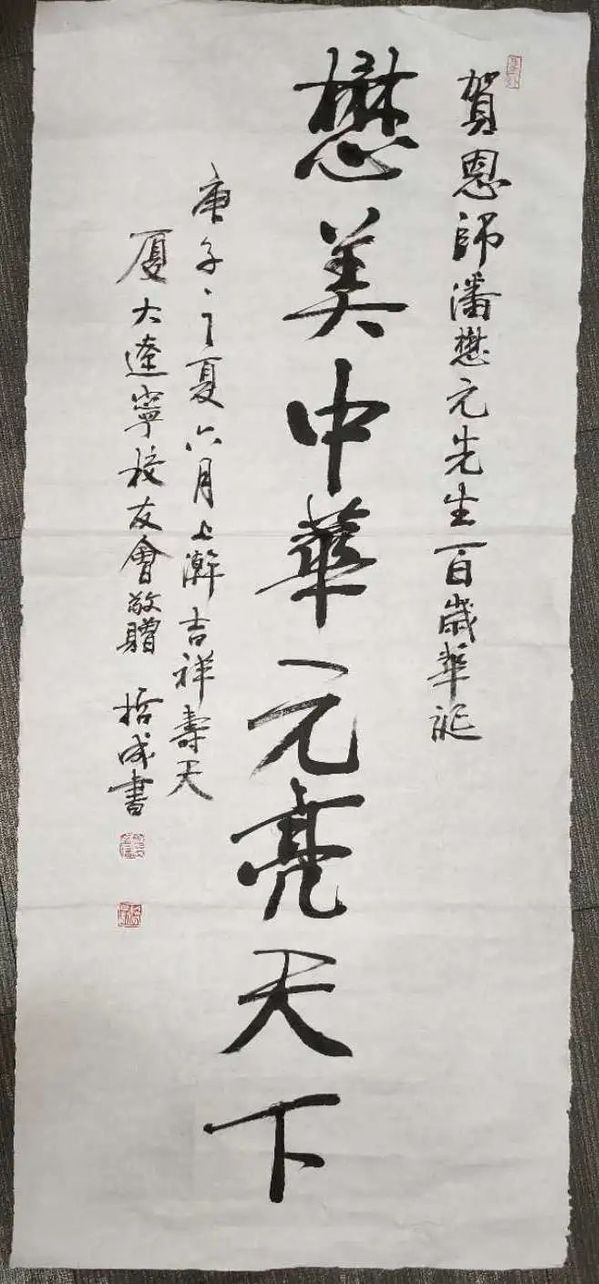 賀恩師潘懋元先生百歲華誕
懋美中華元亮天下
庚子之夏六月上澣吉祥壽天
厦大遼寧校友會敬贈 哲成書